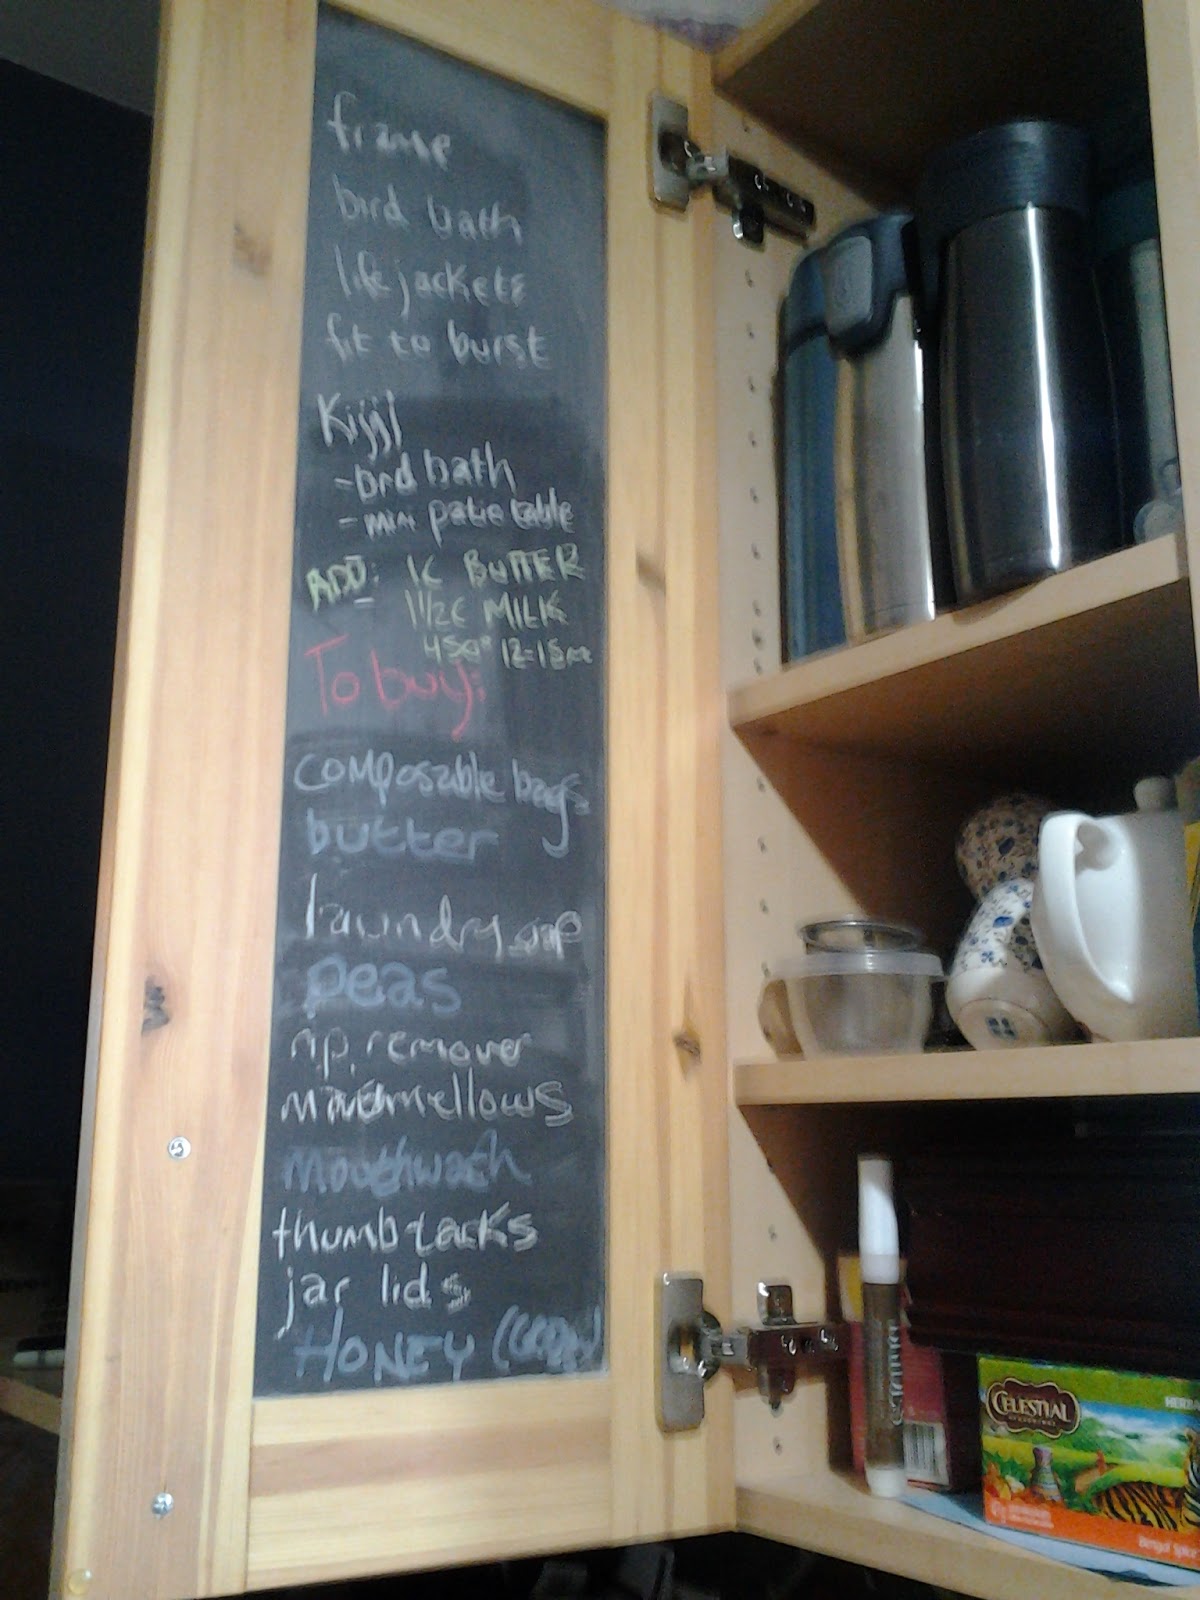 frame
bird bath
life jackets
fit to burst
Kijiji
- bird bath
- mini patio table
ADD: 1C BUTTER
1 1/2C MILK
450° 12-15m
To buy:
composable bags
butter
laundry soap
peas
n.p. remover
marmellows
mouthwash
thumb tacks
jar lids
HONEY
CELESTIAL
SEASONINGS
HERBA
Bengal Spice